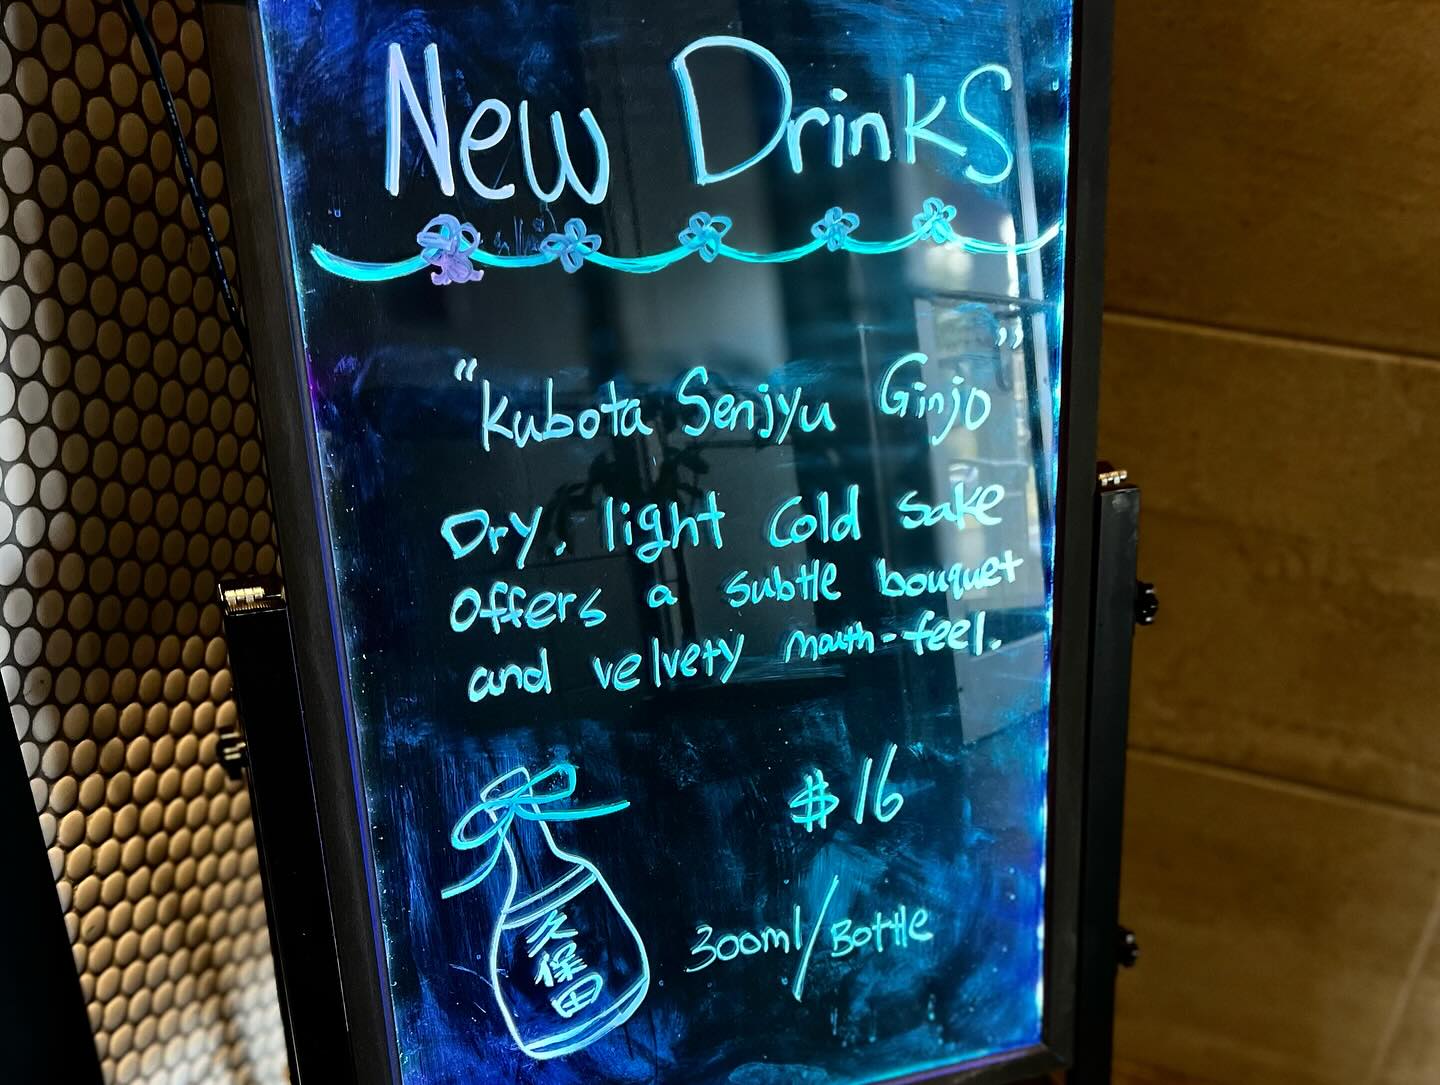 New Drinks
"Kubota Senjyu Ginjo"
Dry. light Cold Sake
Offers a subtle bouquet
and velvety mouth-feel.
$16
300ml/Bottle
久保田